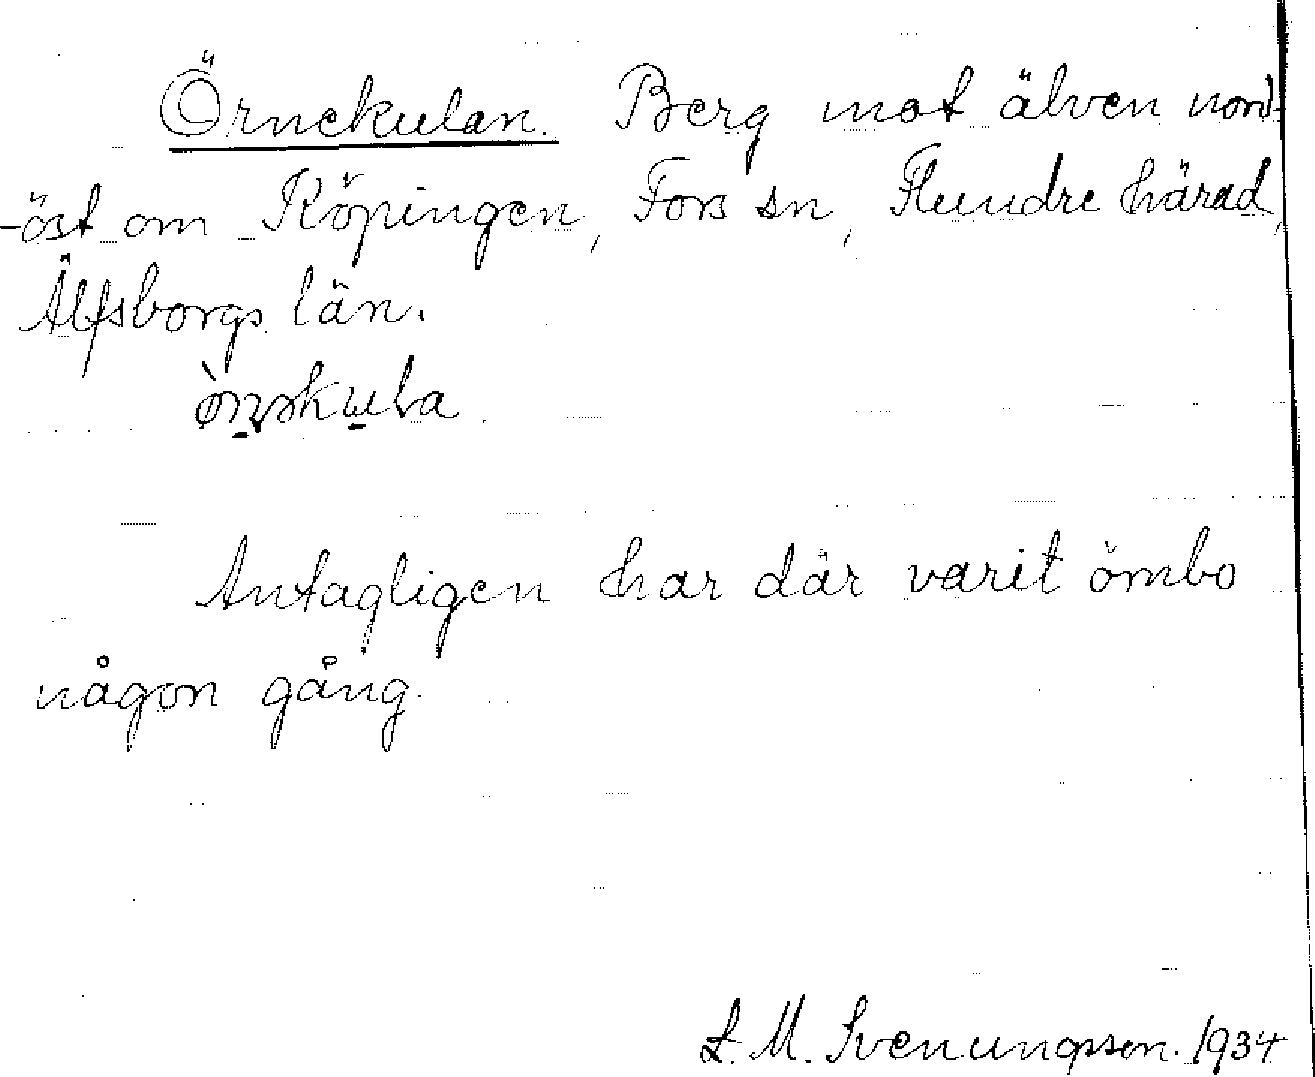 Örnekulan. Berg mot älven nord-
-öst om Köpingen, Fors sn, Flundre härad,
Älfsborgs län.
Antagligen har där varit örnbo
någon gång.
L. M. Svenungsson. 1934